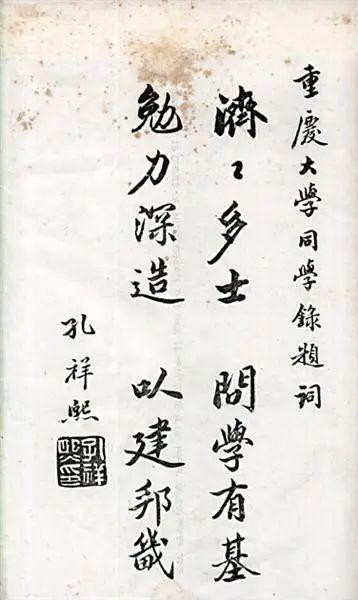 重慶大學同學錄題詞
濟〻多士 問學有基
勉力深造 以建邦畿
孔祥熙
孔祥熙印